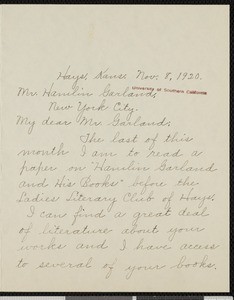 Hays, Kans. Nov. 8, 1920.
Mr. Hamlin Garland,
University of Southern California
New York City.
My dear Mr. Garland:
The last of this
month I am to read a
paper on "Hamlin Garland
and His Books" before the
Ladies' Literary Club of Hays.
I can find a great deal
of literature about your
works and I have access
to several of your books.